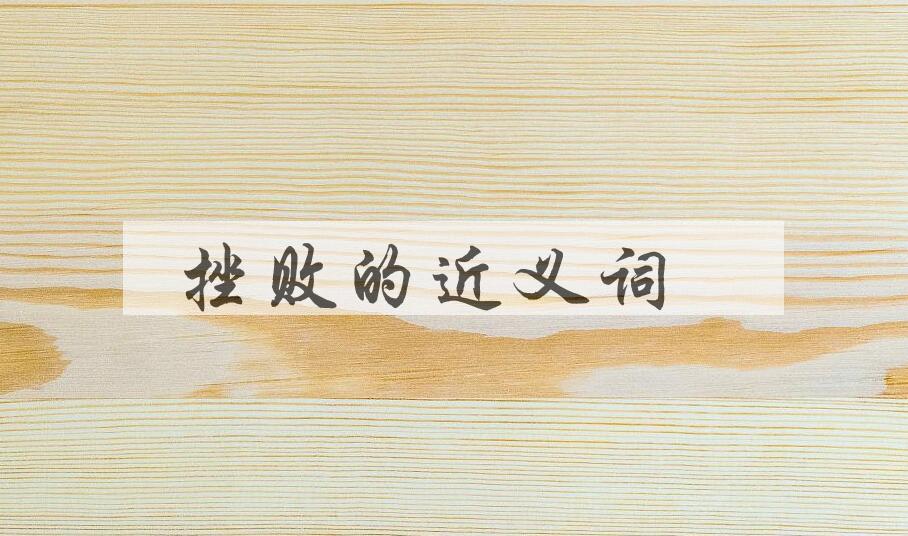 挫败的近义词